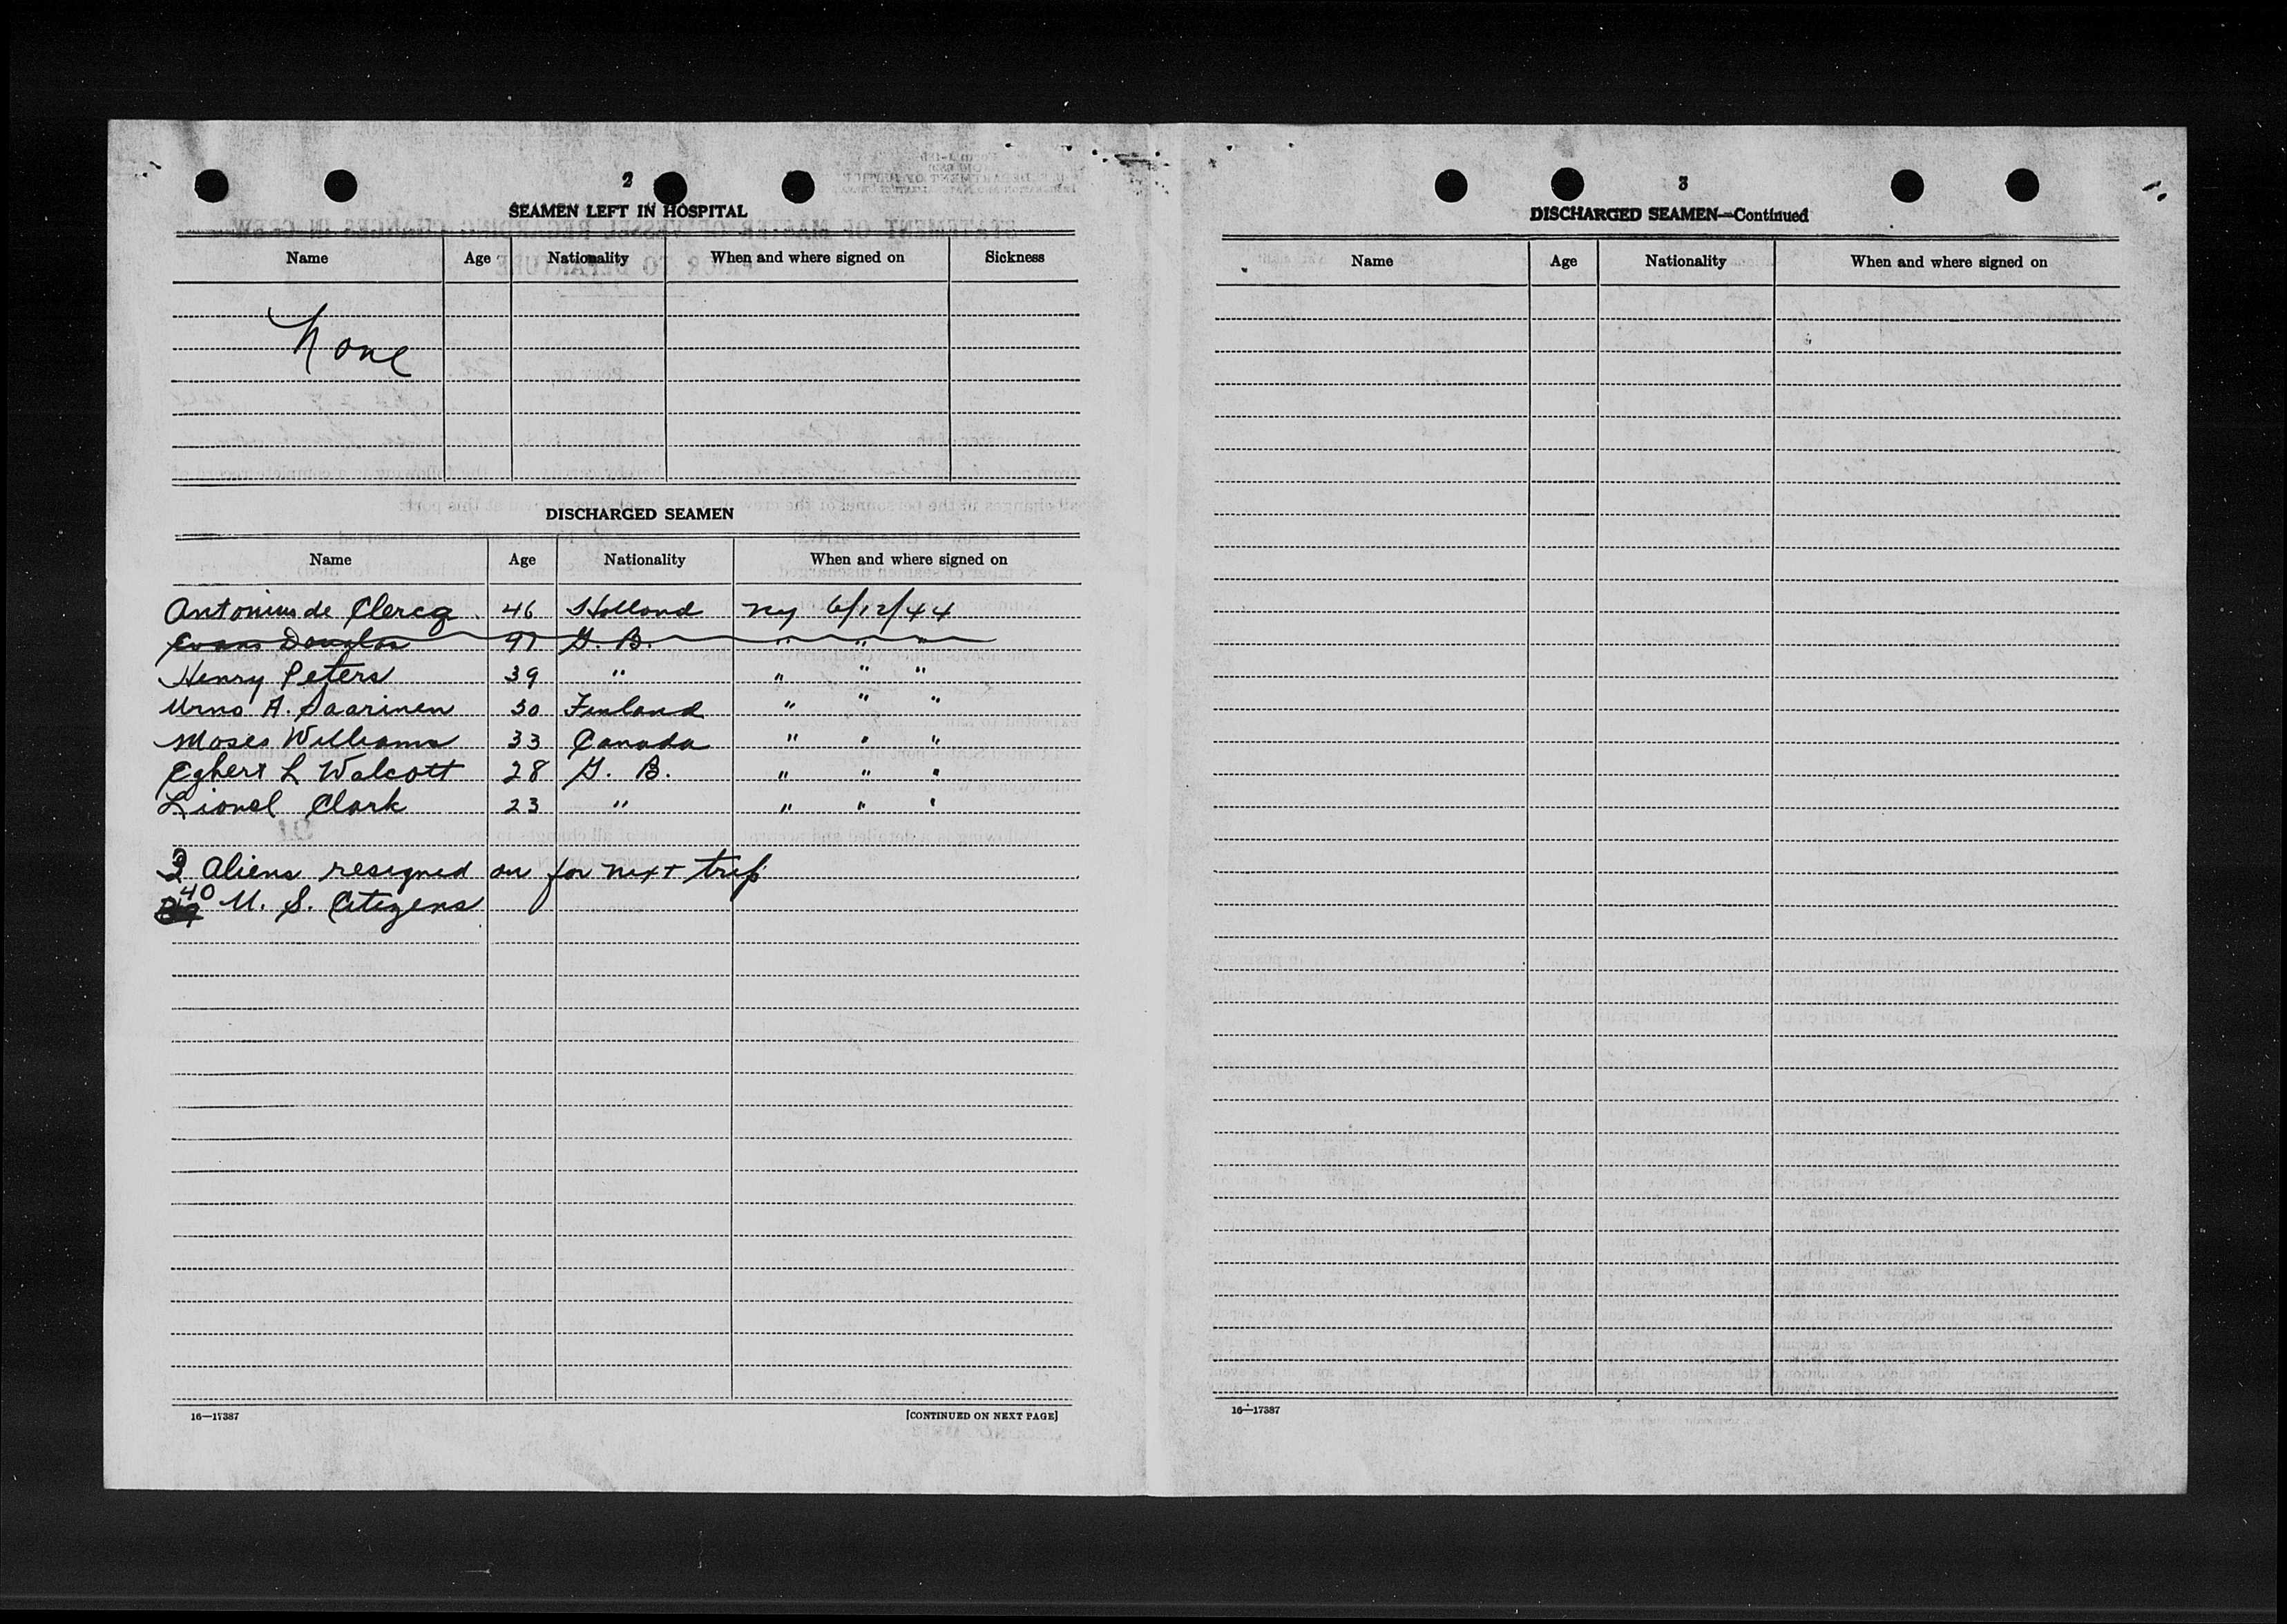 2
SEAMEN LEFT IN HOSPITAL
Name Age Nationality When and where signed on Sickness
None
DISCHARGED SEAMEN
Name Age Nationality When and where signed on
Antonius de Clercq 46 Holland NY 6/12/44
Evans Douglas 47 G. B. " " "
Henry Peters 39 " " " "
Urno A. Saarinen 30 Finland " " "
Moses Williams 33 Canada " " "
Egbert L Walcott 28 G. B. " " "
Lionel Clark 23 " " " "
Aliens resigned on for next trip
40 U. S. Citizens
16—17387 [CONTINUED ON NEXT PAGE]
3
DISCHARGED SEAMEN—Continued
Name Age Nationality When and where signed on
16—17387